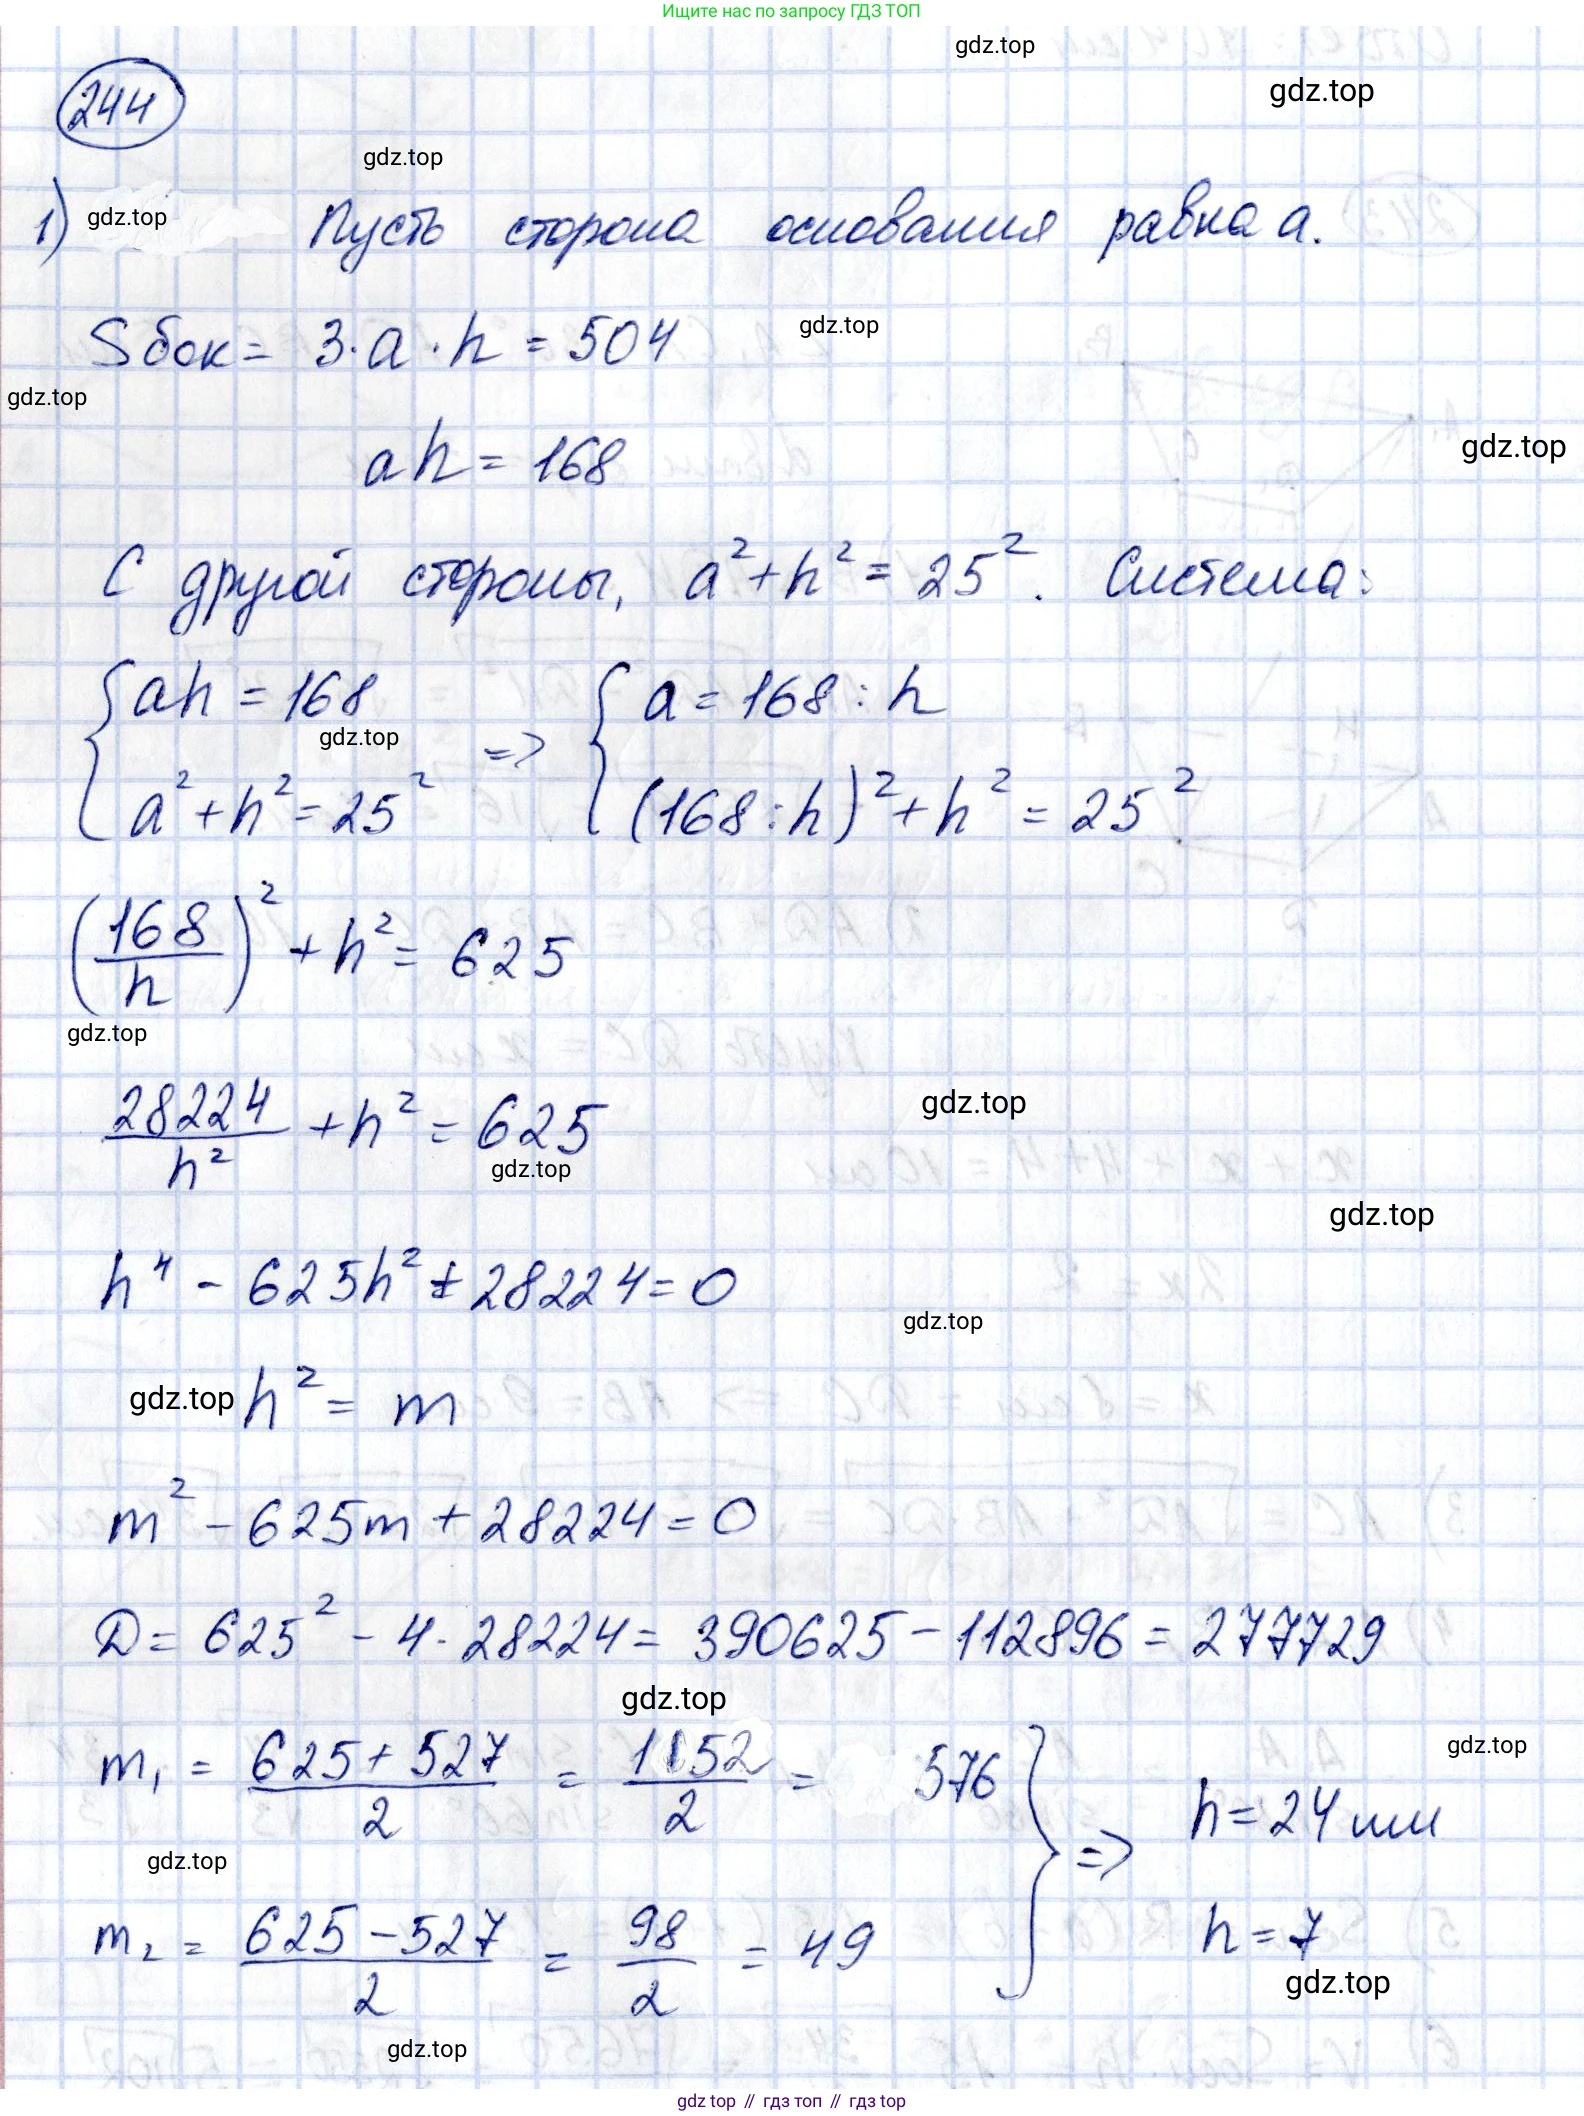 Ищите нас по запросу ГДЗ ТОП
gdz.top
gdz.top
244
gdz.top
1) gdz.top Пусть сторона основания равна a.
Sбок = 3·a·h = 504
gdz.top
gdz.top
ah = 168
gdz.top
С другой стороны, a² + h² = 25². Система:
{ah = 168 => {a = 168 : h
gdz.top
a² + h² = 25² (168 : h)² + h² = 25²
(168/h)² + h² = 625
gdz.top
28224/h² + h² = 625
gdz.top
gdz.top
gdz.top
h⁴ - 625h² + 28224 = 0
gdz.top
gdz.top h² = m
m² - 625m + 28224 = 0
D = 625² - 4·28224 = 390625 - 112896 = 277729
gdz.top
m₁ = (625 + 527)/2 = 1152/2 = 576 } => h = 24 мм
gdz.top
gdz.top
m₂ = (625 - 527)/2 = 98/2 = 49 h = 7
gdz.top
gdz.top
gdz top // гдз топ // gdz.top